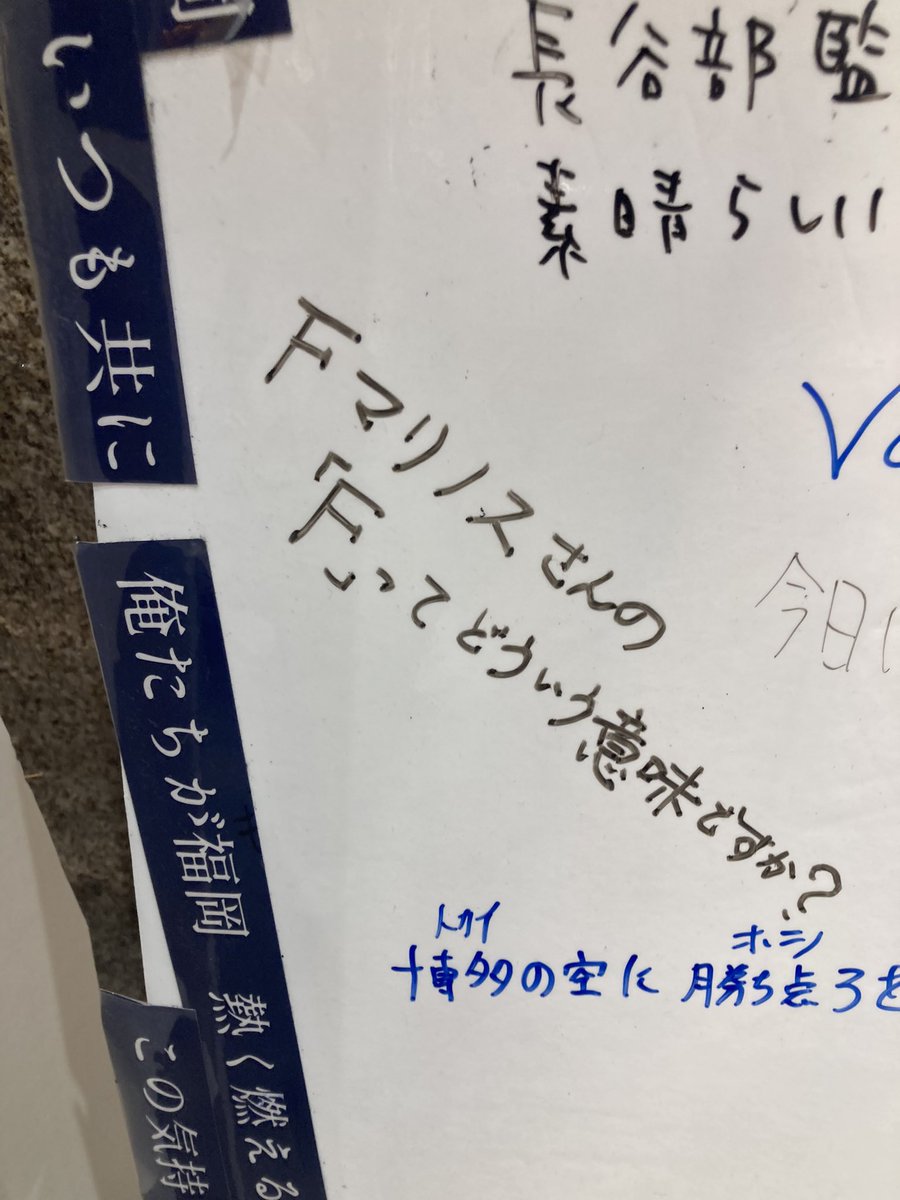 いつも共に
俺たちが福岡
熱く燃える
この気持
長谷部監
素晴らしい
Fマリノスさんの
「F」ってどういう意味ですか?
今日
トカイ
ホシ
博多の空に 勝ち点3を